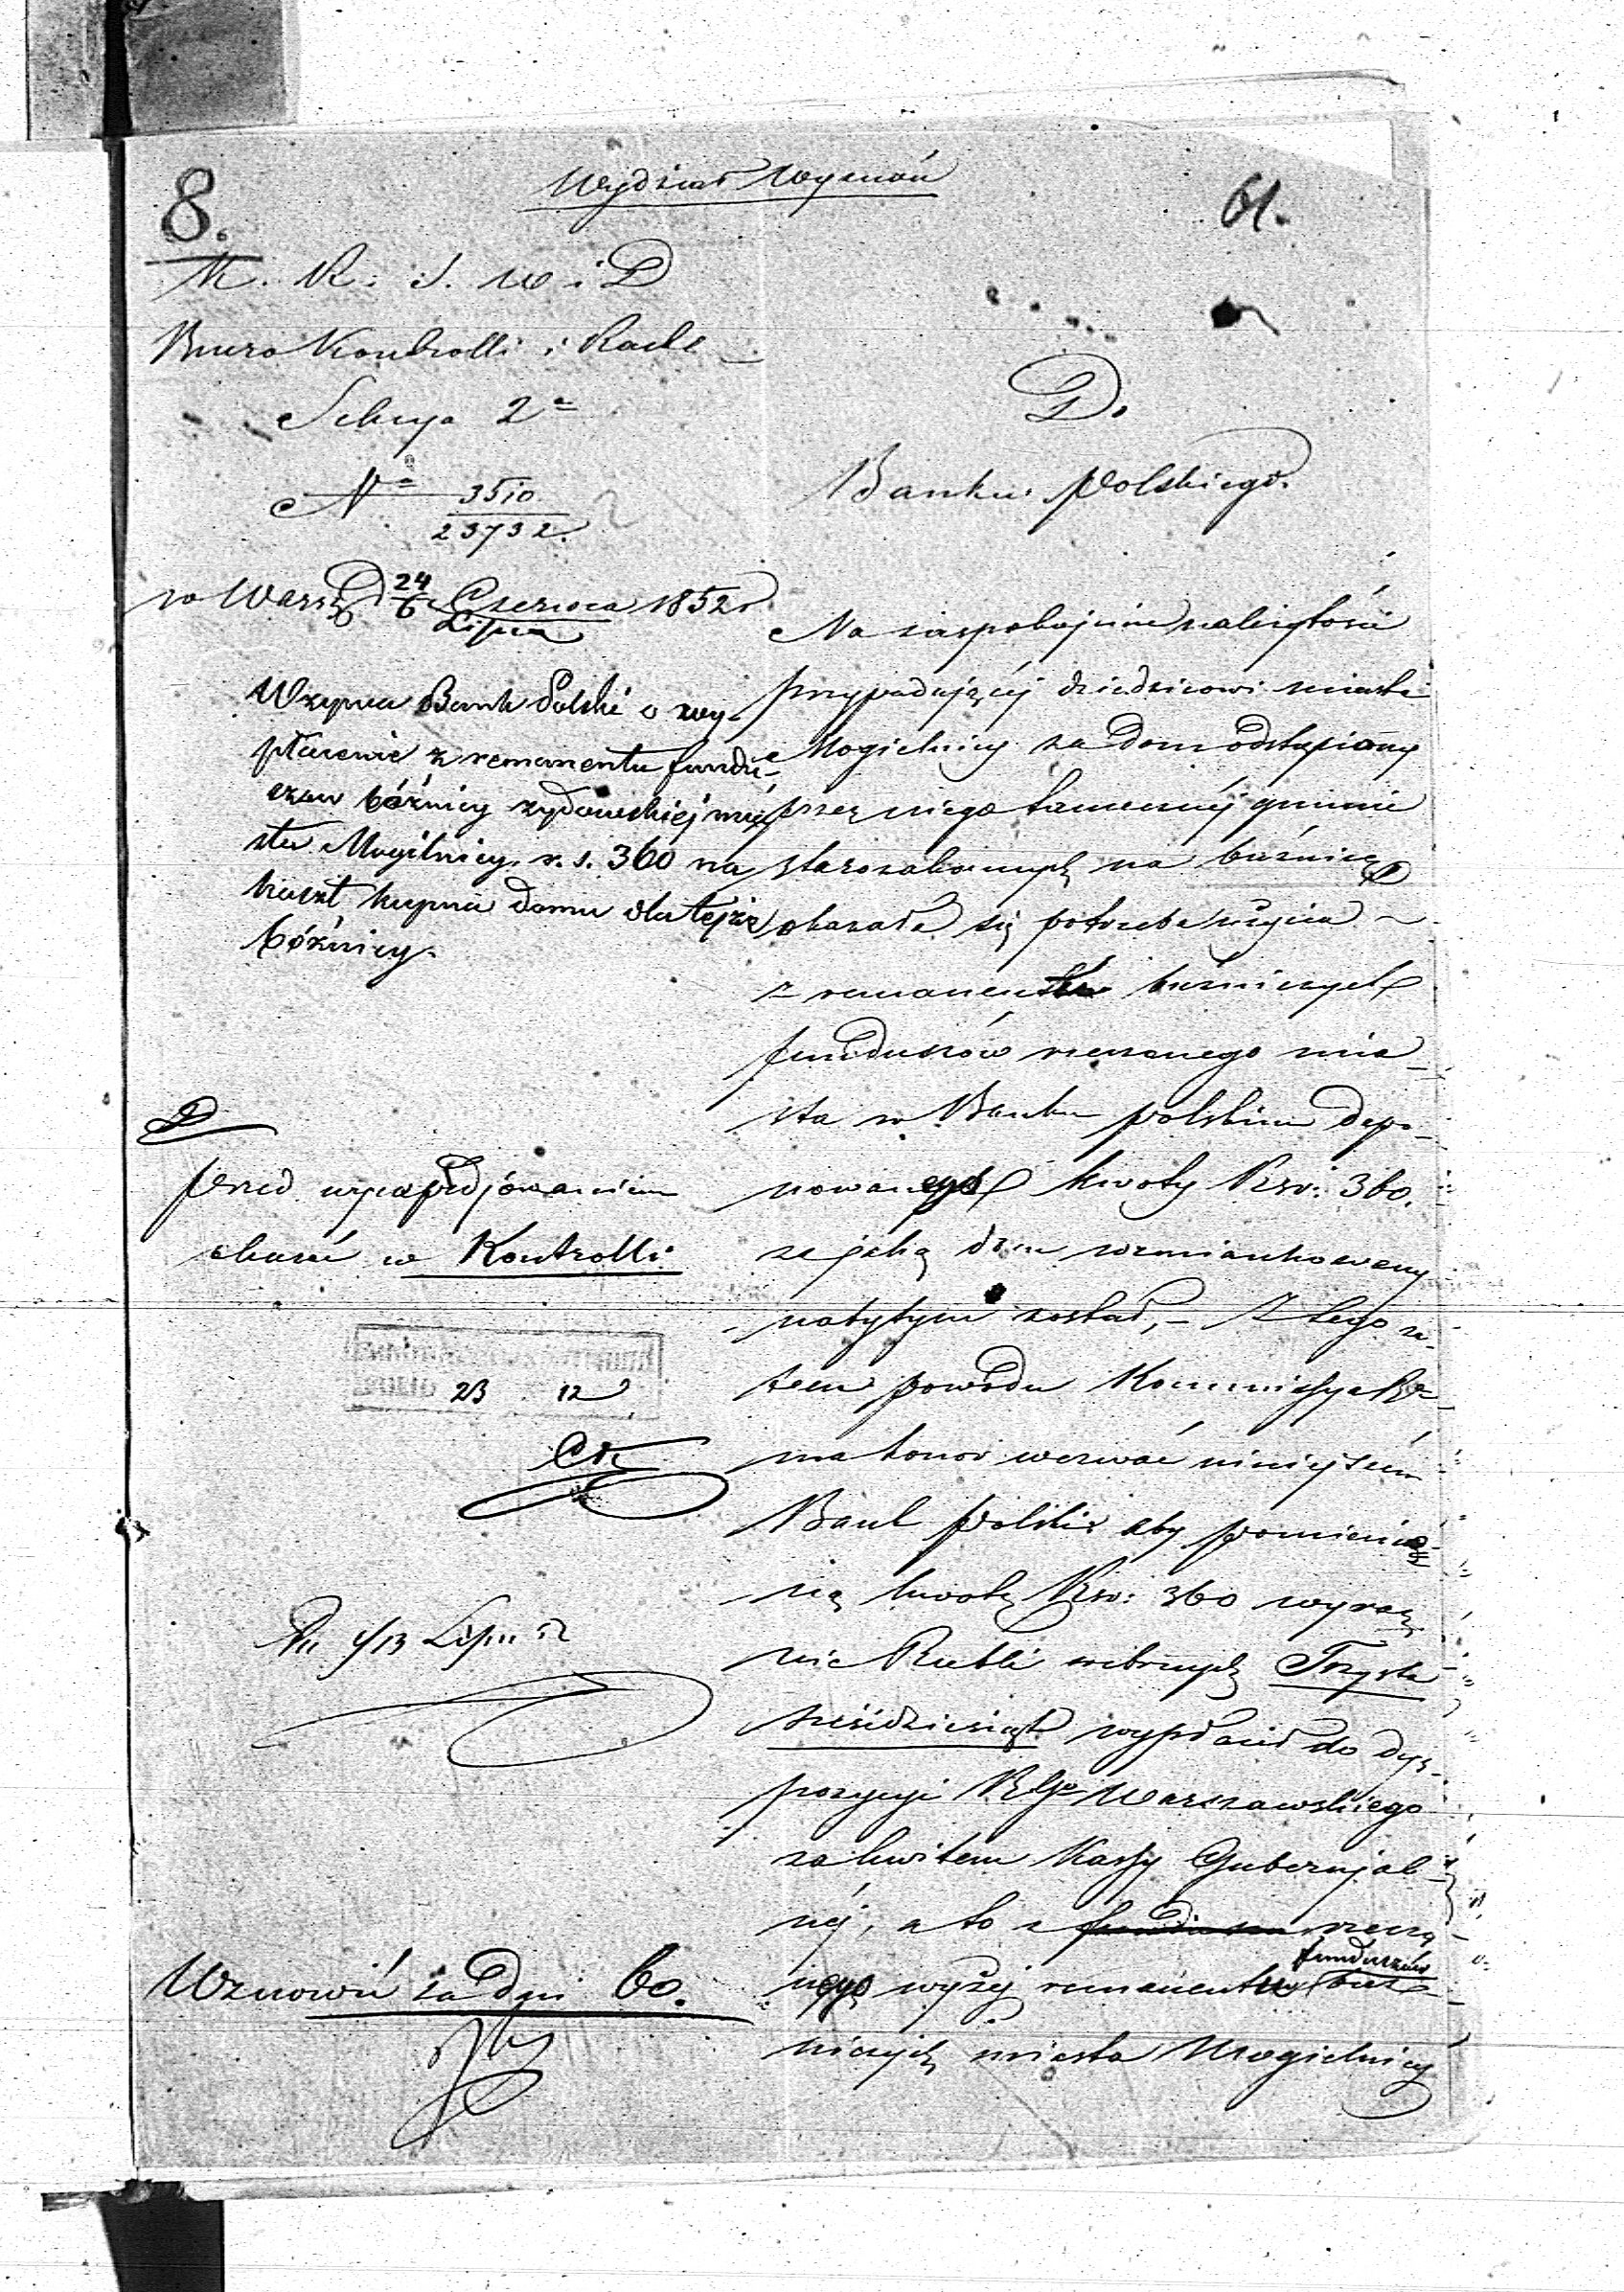 Wydział Wyznań
8.
61.
K. R. S. W i D
Biuro Kontrolli i Rach.
Sekcya 2a
No 3510
23732.
w Warsz. d 24/6 Czerwca 1852 r.
Lipca
Wzywa Bank Polski o wy-
płacenie z remanentu fundu-
szów bóźnicy żydowskiej mia-
sta Mogilnicy r. s. 360 na
koszt kupna domu dla tejże
bóźnicy.
Przed
okazać w Kontrolli
23 12
4/13 Lipca 52
Wznowić za dni 60.
Do
Banku Polskiego.
Na zaspokojenie należytości
przypadającej dziedzicowi miasta
Mogielnicy za dom odstąpiony
przez niego tamecznej gminie
starozakonnych na bóżnicę
okazała się potrzeba użycia
z remanentu bóżniczych
funduszów rzeczonego mia-
sta w Banku polskim depo-
nowanych kwoty Rsr: 360.
za jaką dom wzmiankowany
nabytym został, – Z tego za-
tem powodu Kommissya Rz.
ma honor wezwać niniejszem
Bank polski aby pomienio-
ną kwotę Rsr: 360 wyraź-
nie Rubli srebrnych Trzysta
sześćdziesiąt wypłacił do dys-
pozycyi RGo Warszawskiego
za kwitem Kassy Gubernjal-
nej, a to z funduszu rzeczo-
nego wyżej remanentu funduszów bóż-
niczych miasta Mogielnicy